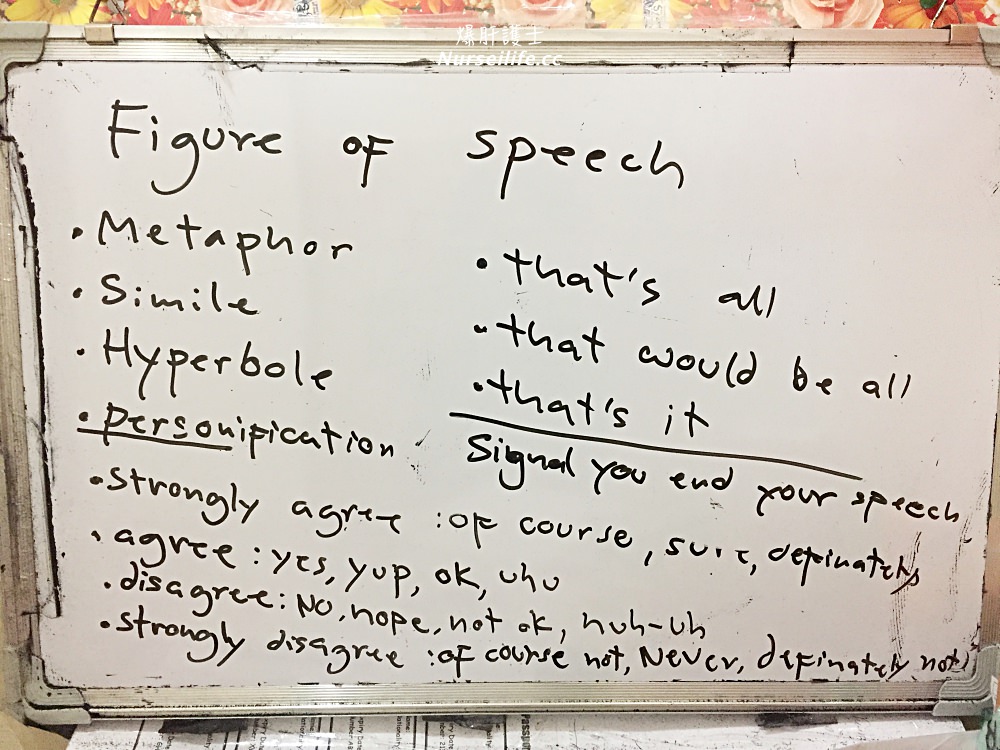 爆肝護士
Nurseilife.cc
Figure of speech
• Metaphor
• Simile
• Hyperbole
• personification
• that's all
• that would be all
• that's it
Signal you end your speech
• strongly agree : of course, sure, definately
• agree : yes, yup, ok, uhu
• disagree : No, nope, not ok, nuh-uh
• strongly disagree : of course not, Never, definately not